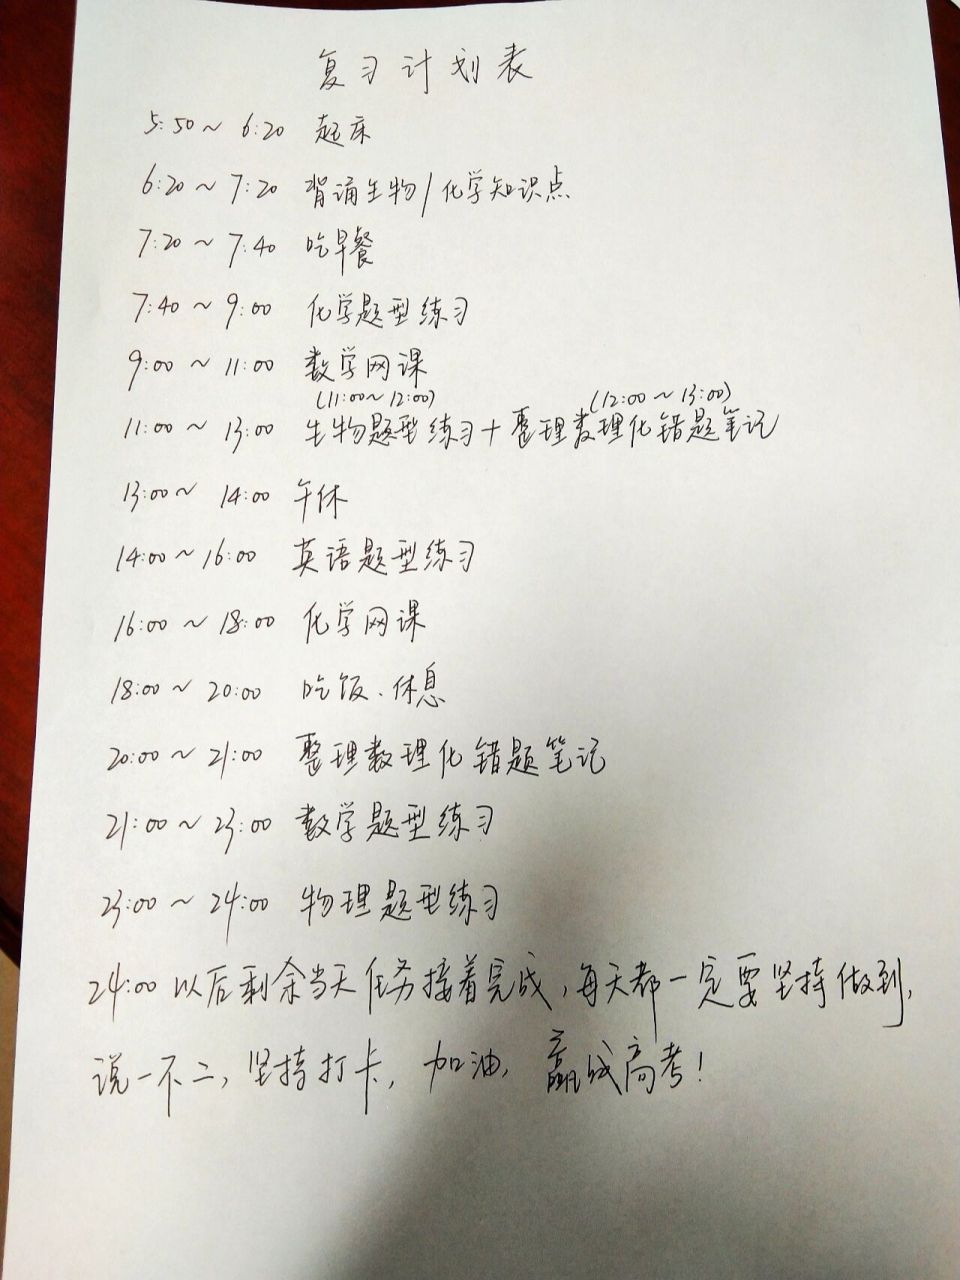 复习计划表
5:50~6:20 起床
6:20~7:20 背诵生物/化学知识点
7:20~7:40 吃早餐
7:40~9:00 化学题型练习
9:00~11:00 数学网课
(11:00~12:00) (12:00~13:00)
11:00~13:00 生物题型练习+整理数理化错题笔记
13:00~14:00 午休
14:00~16:00 英语题型练习
16:00~18:00 化学网课
18:00~20:00 吃饭、休息
20:00~21:00 整理数理化错题笔记
21:00~23:00 数学题型练习
23:00~24:00 物理题型练习
24:00以后剩余当天任务接着完成,每天都一定要坚持做到,
说一不二,坚持打卡,加油,赢战高考!